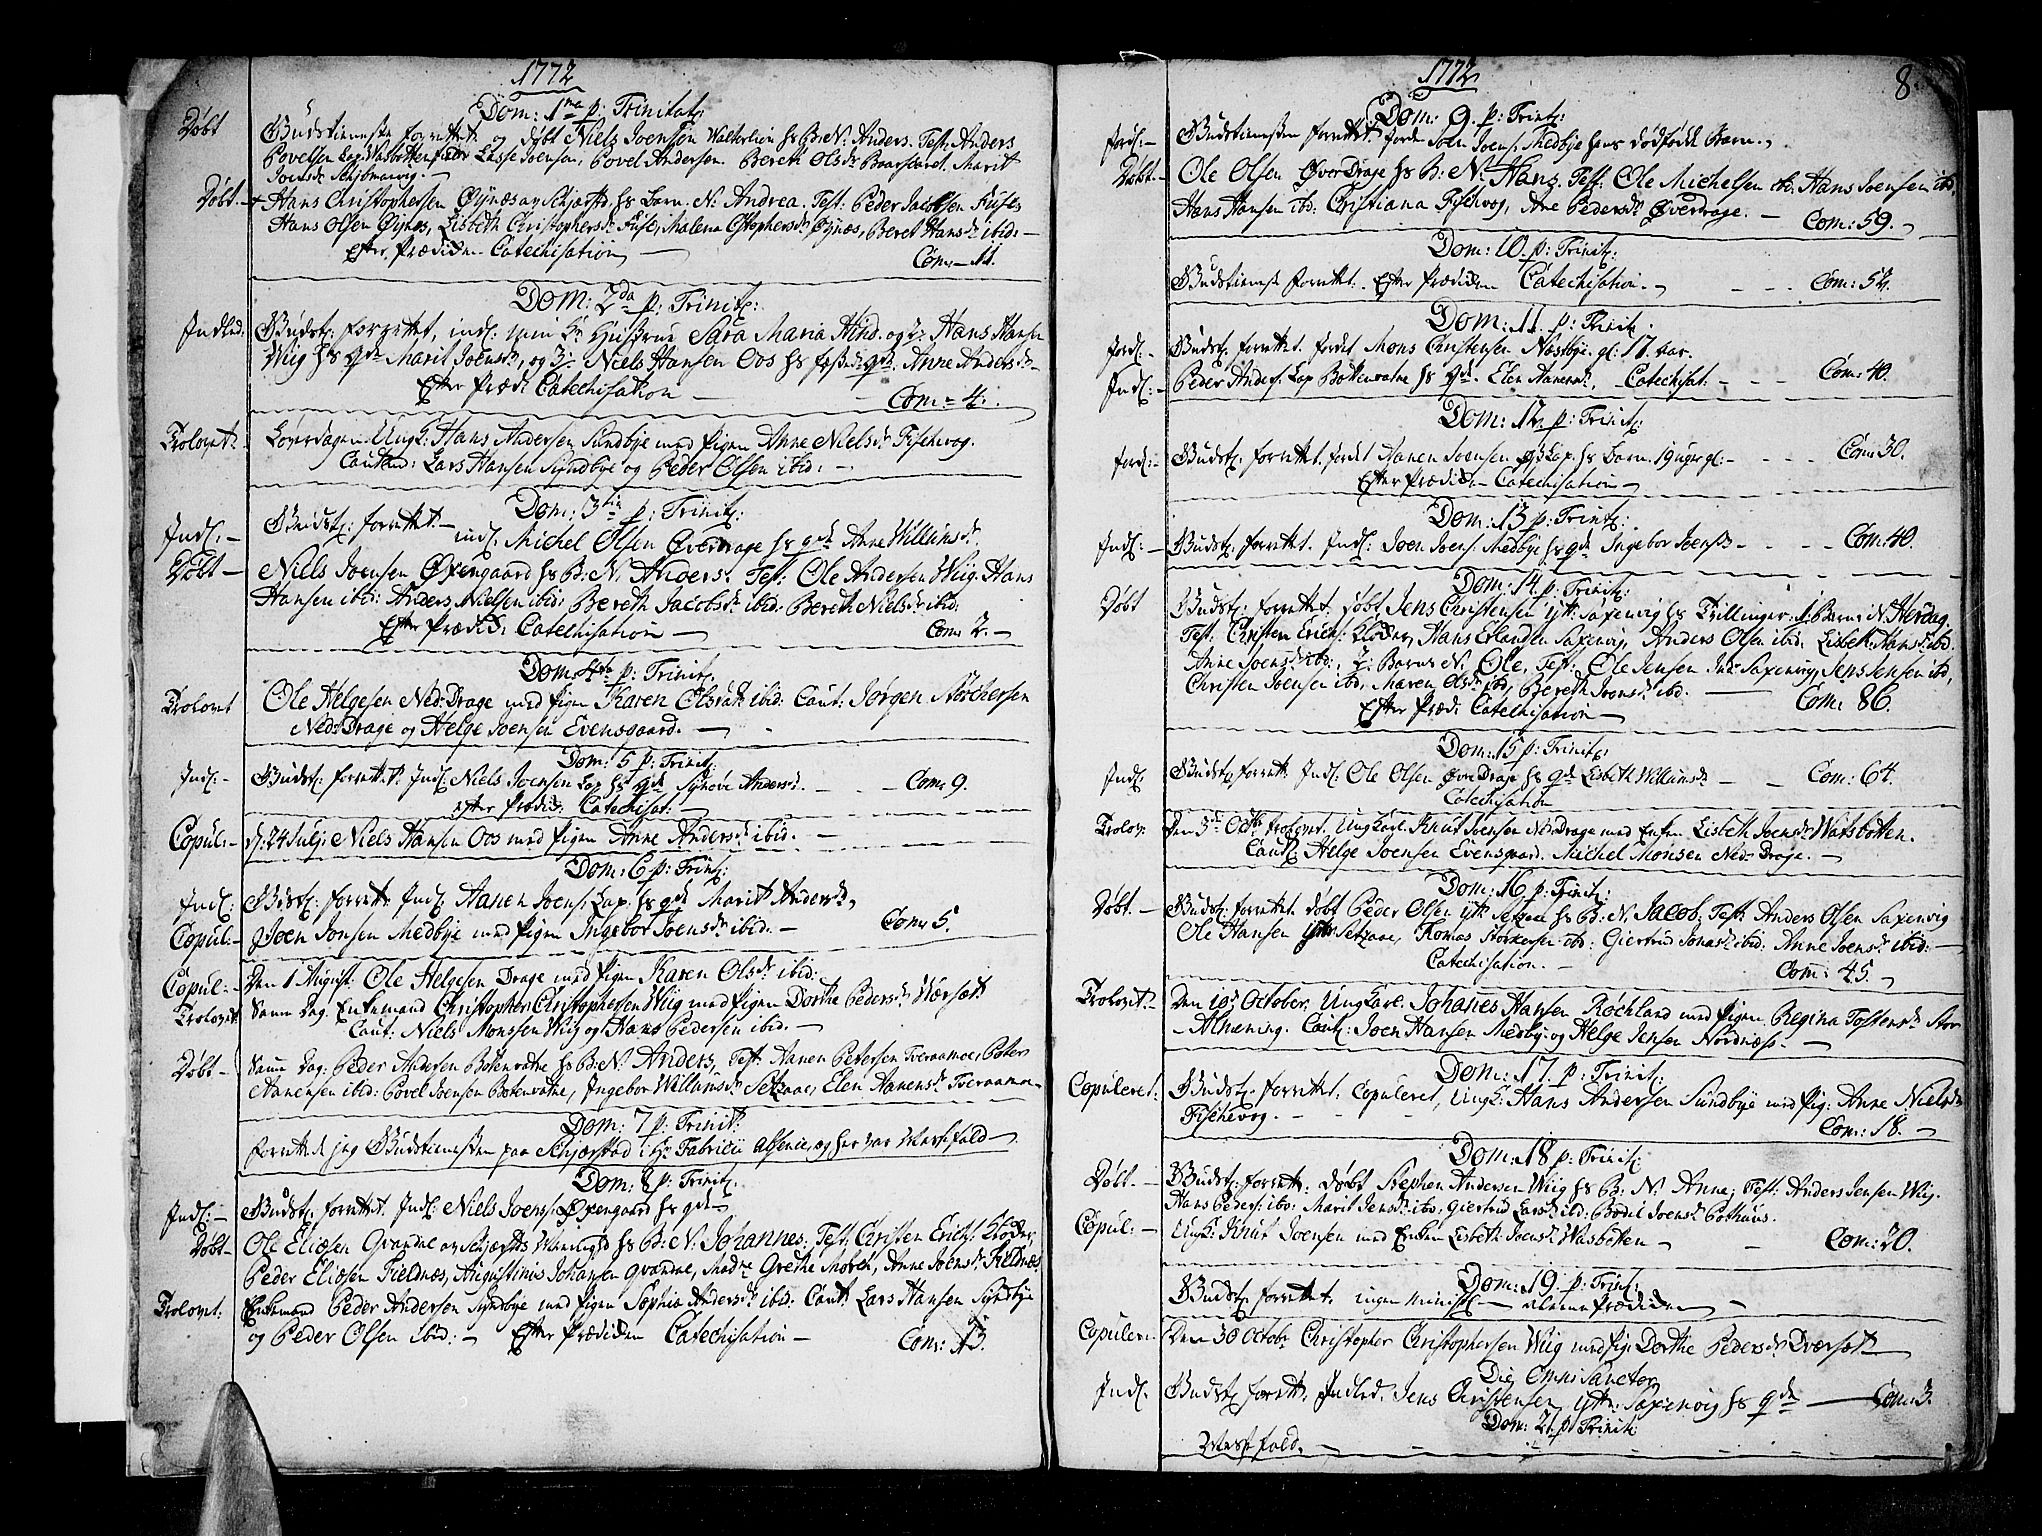 1772
Dom: 1na p: Trinitat:
Døbt
Gudstienesten forrettet og døbt Niels Joensøn hs B: N: Anders. Test: Anders
Povelsen Lasse Joensen, Povel Andersen Bereth Olsdr Marit
Joensdr
Døbt. Hans Christophersen Øynæs hs Barn. N: Andrea. Test: Peder Jacobsen Fuse,
Hans Olsen Øynes, Lisbeth Christophersdr Fuse, Malena Øynæs, Beret Hansdr ibid:
Efter Prædiken Catechisation Com: 11.
Dom: 2da p: Trinit:
Indled. Gudst: forrettet, indl: min Hustrue Sara Maria Hind. og 2: Hans Hansen
Wiig hs qde Marit Joensdr, og 3: Niels Hansen Oos hs qde: Anne Andersdr
Efter Præd: Catechisation Com: 4.
Trolovet: Løverdagen Ungk: Hans Andersen Sundbye med Pigen Anne Nielsdr Fischvog.
Caut: Lars Hansen Syndbye og Peder Olsen ibid:
Dom: 3tia p: Trinit:
Indl: Gudst: forrettet. indl. Michel Olsen Øverdrage hs qde Anne Willumsdr.
Døbt Niels Joensen Øxengaard hs B: N: Anders. Test: Ole Andersen Wiig. Hans
Hansen ibid: Anders Nielsen ibid: Bereth Jacobsdr ibid: Bereth Nielsdr ibid:
Efter Prædik: Catechisation Com: 2.
Dom: 4ta p: Trinit:
Trolovet Ole Helgesen Ned: Drage med Pigen Karen Olsdr ibid: Caut: Jørgen Storchersen
Ned: Drage og Helge Joensen Evensgaard.
Dom: 5 p: Trinit:
Indl: Gudst: forrettet. Indl: Niels Joensen Lap hs qde Synøve Andersdr. Com: 9.
efter Prædik: Catechisat:
Copul: d: 24 Julj: Niels Hansen Oos med Pigen Anne Andersdr ibid.
Dom: 6 p: Trin:
Indl: Gudst: forrett: Indl: Aanen Joens: Lap. hs qde Marit Andersdr,
Copul: Joen Jonsen Medbye med Pigen Ingebor Joensdr ibid. Com: 5.
Copul: Den 1 August Ole Helgesen Drage med Pigen Karen Olsdr ibid:
Trolovet Samme Dag Enkemand Christopher Christophersen Wiig med Pigen Dorthe Pedersdr
Caut: Niels Monssen Wiig og Hans Pedersen ibid.
Døbt Samme Dag: Peder Andersen Botenvatne hs B: N: Anders, Test: Aanen Petersen Tveraamoe, Peter
Aanensen ibid: Povel Joensen Botenvatne, Ingebor Willumsdr Setzaae, Elen Aanensdr Tveraamoe
Dom: 7 p: Trinit:
forrettede jeg Gudstienesten paa Schjærstad i Hr Fabricii og her var Messefald
Dom: 8 p: Trinit:
Indl: Gudst: forrettet. Indl: Niels Joens: Øxengaard hs qde
Døbt Ole Eliæsen Qvandal hs B: N: Johannes. Test: Christen Erichs: Kloder,
Peder Eliæsen Fieldnæs, Augustinus Johansen Madme Grethe Anne Joensdr Fieldnæs.
Trolovet: Enkemand Peder Andersen Syndbye med Pigen Sophia Andersdr ibid: Caut: Lars Hansen Syndbye
og Peder Olsen ibid: Efter Prædiken Catechisation Com: 13.
1772
8.
Dom: 9. p: Trinit:
Jord: Gudstienesten forrettet. Jordet Joen Joens: Medbye hans dødfødde Barn.
Døbt. Ole Olsen ØverDrage hs B: N: Hans. Test: Ole Michelsen ibd: Hans Joensen ibd,
Hans Hansen ibd: Cristiana Fischvog, Ane Pedersdr Øverdrage. Com: 59.
Dom: 10. p: Trinit:
Gudstienest forrettet. Efter Prædiken Catechisation. Com: 54.
Dom: 11. p: Trinit:
Jord: Gudst: forrettet. Jordet Mons Christensen Næstbye. gl: 17 aar.
Indl: Peder Anders: Lap Bottenvatne hs qde. Elen Aanensdr. Catechisat: Com: 40.
Dom: 12. p: Trinit:
Jord: Gudst: forrettet. Jordet Aanen Joensen Lap. hs Barn. 19 uger gl: Com: 30.
Efter Prædiken Catechisation
Dom: 13 p: Trinit:
Indl: Gudst: forrettet. Indl: Joen Joens: Medbye hs qde Ingebor Joensdr Com: 40.
Dom: 14. p: Trinit:
Døbt Gudst: forrettet: døbt Jens Christensen Ytt: Saxenvig hs Trillinger. 1. Barn: N: Herdag.
Test: Christen Erichs: Kloder, Hans Erlandsen Saxenvig, Anders Olsen ibid: Lisbeth Hansdr ibd.
Anne Joensdr ibd: 2: Barn N: Ole, Test: Ole Jensen Saxenvig, Jens Jensen ibd,
Christen Joensen ibd, Maren Olsdr ibd, Bereth Joensdr ibd.
Efter Præd: Catechisation Com: 86.
Dom: 15 p: Trinit:
Indl: Gudst: forrett: Indl: Ole Olsen ØverDrage hs qde Lisbeth Willumsdr Com: 64.
Catechisation
Trolov: Den 3de Octbr trolovet. Ungkarl. Knut Joensen Ned: Drage med Enken Lisbeth Joensdr Watsbotten.
Caut: Helge Joensen Evensgaard. Michel Monsen Ned: Drage.
Dom: 16 p: Trinit:
Døbt. Gudst: forrettet. døbt Peder Olsen Ytt: Setzaae hs B: N: Jacob. Test: Anders Olsen Saxenvig
Ole Hansen Ytt: Setzaae, Romas Storkersen ibd: Giertrud Jonasdr ibid: Anne Joensdr ibid:
Catechisation. Com: 45.
Trolovet Den 10de October, Ungkarl. Johanes Hansen Røchland med Pigen Regina Tostensdr Stor
Almening. Caut: Joen Hansen Medbye og Helge Jensen Nordnæs.
Dom: 17. p: Trinit:
Copuleret: Gudst: forrettet. Copuleret, Ungk: Hans Andersen Sundbye med Pig: Anne Nielsdr
Fischvog. Com: 18.
Dom: 18 p: Trinit:
Døbt. Gudst: forrett: døbt Stephen Andersen Wiig hs B: N: Anne; Test: Anders Jensen Wiig.
Hans Peders: ibd: Marit Jensdr ibd: Giertrud Larsdr ibd: Bodil Joensdr Pothuus.
Copul: Ungk: Knut Joensen med Enken Lisbeth Joensdr Wasbotten Com: 20.
Dom: 19. p: Trinit:
Gudst: forrettet. ingen Prædiken
Copuler: Den 30 Octobr Christopher Christophersen Wiig med Pig: Dorthe Pedersdr
Die Omni Sanctor.
Indl. Gudst: forrett: Indled. Jens Christensen Ytter: Saxenvig hs qde Com: 3.
Dom: 21. p: Trinit:
Messefald.